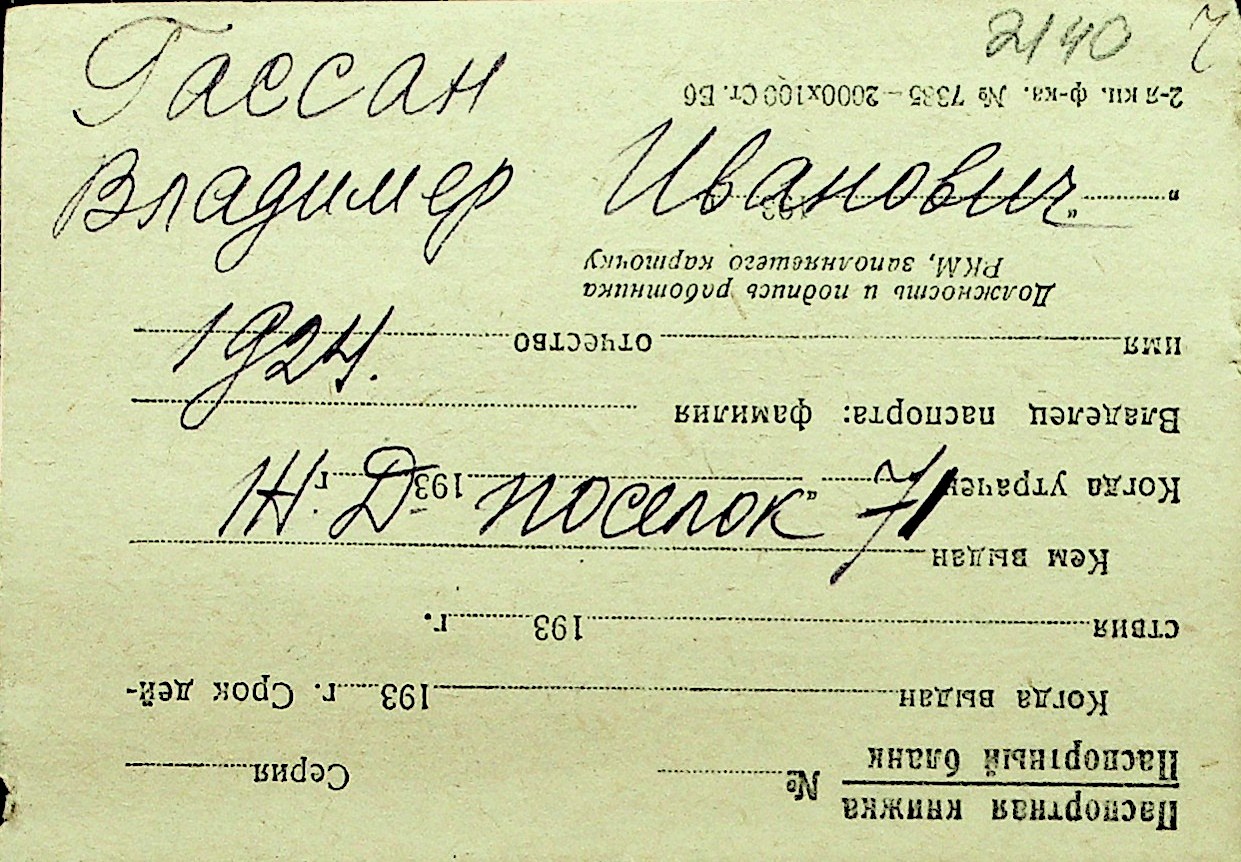 2140
Гассан
Владимер Иванович
1924.
Ж.Д- поселок 71
Паспортная книжка
Паспортный бланк
№ Серия
Когда выдан 193 г. Срок дей-
ствия 193 г.
Кем выдан
Когда утрачен „ “ 193 г.
Владелец паспорта: фамилия
имя отчество
Должность и подпись работника
РКМ, заполнявшего карточку
„ “ 193
2-я кн. ф-ка. № 7335—2000х100 Ст. Б6